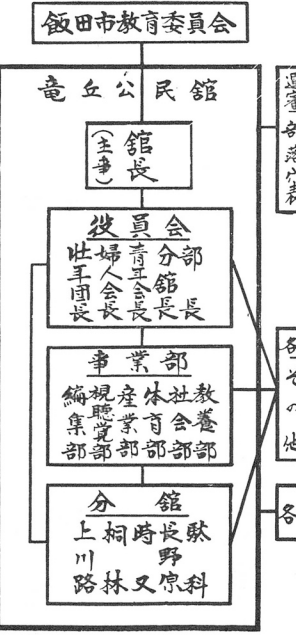 飯田市教育委員会
竜丘公民舘
舘長
(主事)
役員会
部長
分舘長
青年会長
婦人会長
壮年団長
事業部
教養部
社会部
体育部
産業部
視聴覚部
編集部
分舘
駄科
長野原
時又
桐林
上川路
部落代表
各
その他
各